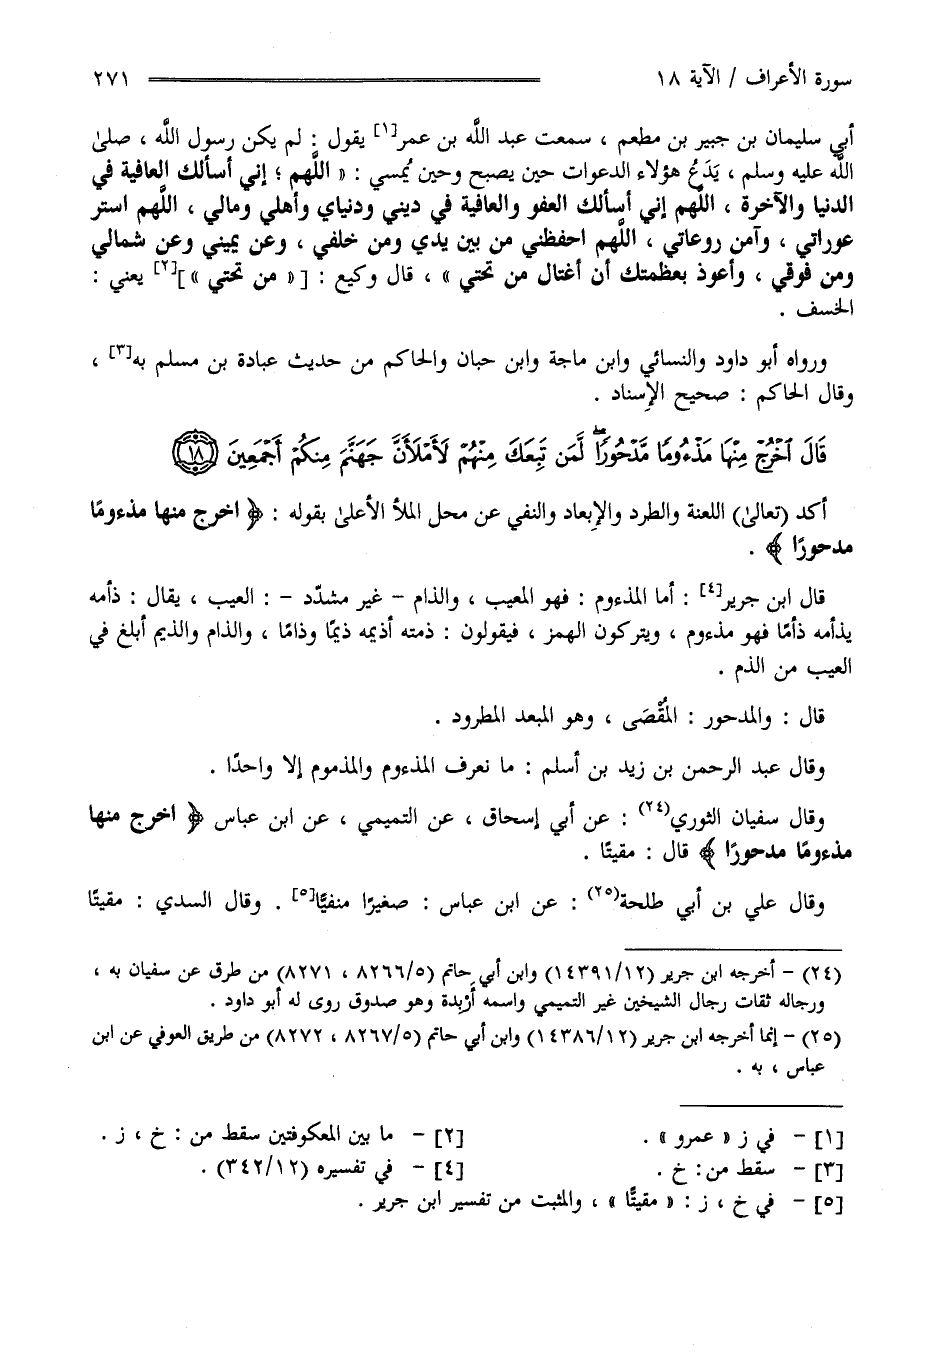 سورة الأعراف / الآية ١٨ ٢٧١
أبي سليمان بن جبير بن مطعم ، سمعت عبد الله بن عمر[١] يقول : لم يكن رسول الله ، صلىٰ
الله عليه وسلم ، يَدَعُ هؤلاء الدعوات حين يصبح وحين يُمسي : « اللَّهم ؛ إني أسألك العافية في
الدنيا والآخرة ، اللَّهم إني أسألك العفو والعافية في ديني ودنياي وأهلي ومالي ، اللَّهم استر
عوراتي ، وآمن روعاتي ، اللَّهم احفظني من بين يدي ومن خلفي ، وعن يميني وعن شمالي
ومن فوقي ، وأعوذ بعظمتك أن أغتال من تحتي » ، قال وكيع : [« من تحتي »][٢] يعني :
الخسف .
ورواه أبو داود والنسائي وابن ماجة وابن حبان والحاكم من حديث عبادة بن مسلم به[٣] ،
وقال الحاكم : صحيح الإسناد .
قَالَ ٱخْرُجْ مِنْهَا مَذْءُومًا مَّدْحُورًاۖ لَّمَن تَبِعَكَ مِنْهُمْ لَأَمْلَأَنَّ جَهَنَّمَ مِنكُمْ أَجْمَعِينَ ١٨
أكد (تعالىٰ) اللعنة والطرد والإبعاد والنفي عن محل الملأ الأعلىٰ بقوله : ﴿ اخرج منها مذءومًا
مدحورًا ﴾ .
قال ابن جرير[٤] : أما المذءوم : فهو المعيب ، والذام – غير مشدّد – : العيب ، يقال : ذأمه
يذأمه ذأمًا فهو مذءوم ، ويتركون الهمز ، فيقولون : ذمته أذيمه ذيمًا وذامًا ، والذام والذيم أبلغ في
العيب من الذم .
قال : والمدحور : المُقْصَى ، وهو المبعد المطرود .
وقال عبد الرحمن بن زيد بن أسلم : ما نعرف المذءوم والمذموم إلا واحدًا .
وقال سفيان الثوري(٢٤) : عن أبي إسحاق ، عن التميمي ، عن ابن عباس ﴿ اخرج منها
مذءومًا مدحورًا ﴾ قال : مقيتًا .
وقال علي بن أبي طلحة(٢٥) : عن ابن عباس : صغيرًا منفيًّا[٥] . وقال السدي : مقيتًا
(٢٤) – أخرجه ابن جرير (١٤٣٩١/١٢) وابن أبي حاتم (٨٢٦٦/٥ ، ٨٢٧١) من طرق عن سفيان به ،
ورجاله ثقات رجال الشيخين غير التميمي واسمه أرْبدة وهو صدوق روى له أبو داود .
(٢٥) – إنما أخرجه ابن جرير (١٤٣٨٦/١٢) وابن أبي حاتم (٨٢٦٧/٥ ، ٨٢٧٢) من طريق العوفي عن ابن
عباس ، به .
[١] – في ز « عمرو » . [٢] – ما بين المعكوفتين سقط من : خ ، ز .
[٣] – سقط من: خ . [٤] – في تفسيره (٣٤٢/١٢) .
[٥] – في خ ، ز : « مقيتًا » ، والمثبت من تفسير ابن جرير .